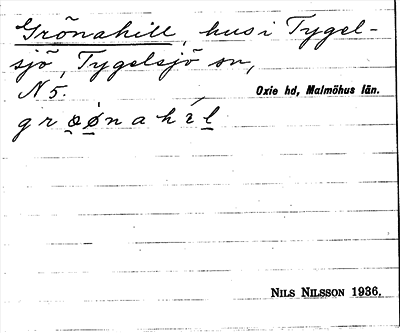 Grönahill, hus i Tygel-
sjö, Tygelsjö sn,
N 5.
Oxie hd, Malmöhus län.
grøø̂nahíl
NILS NILSSON 1936.